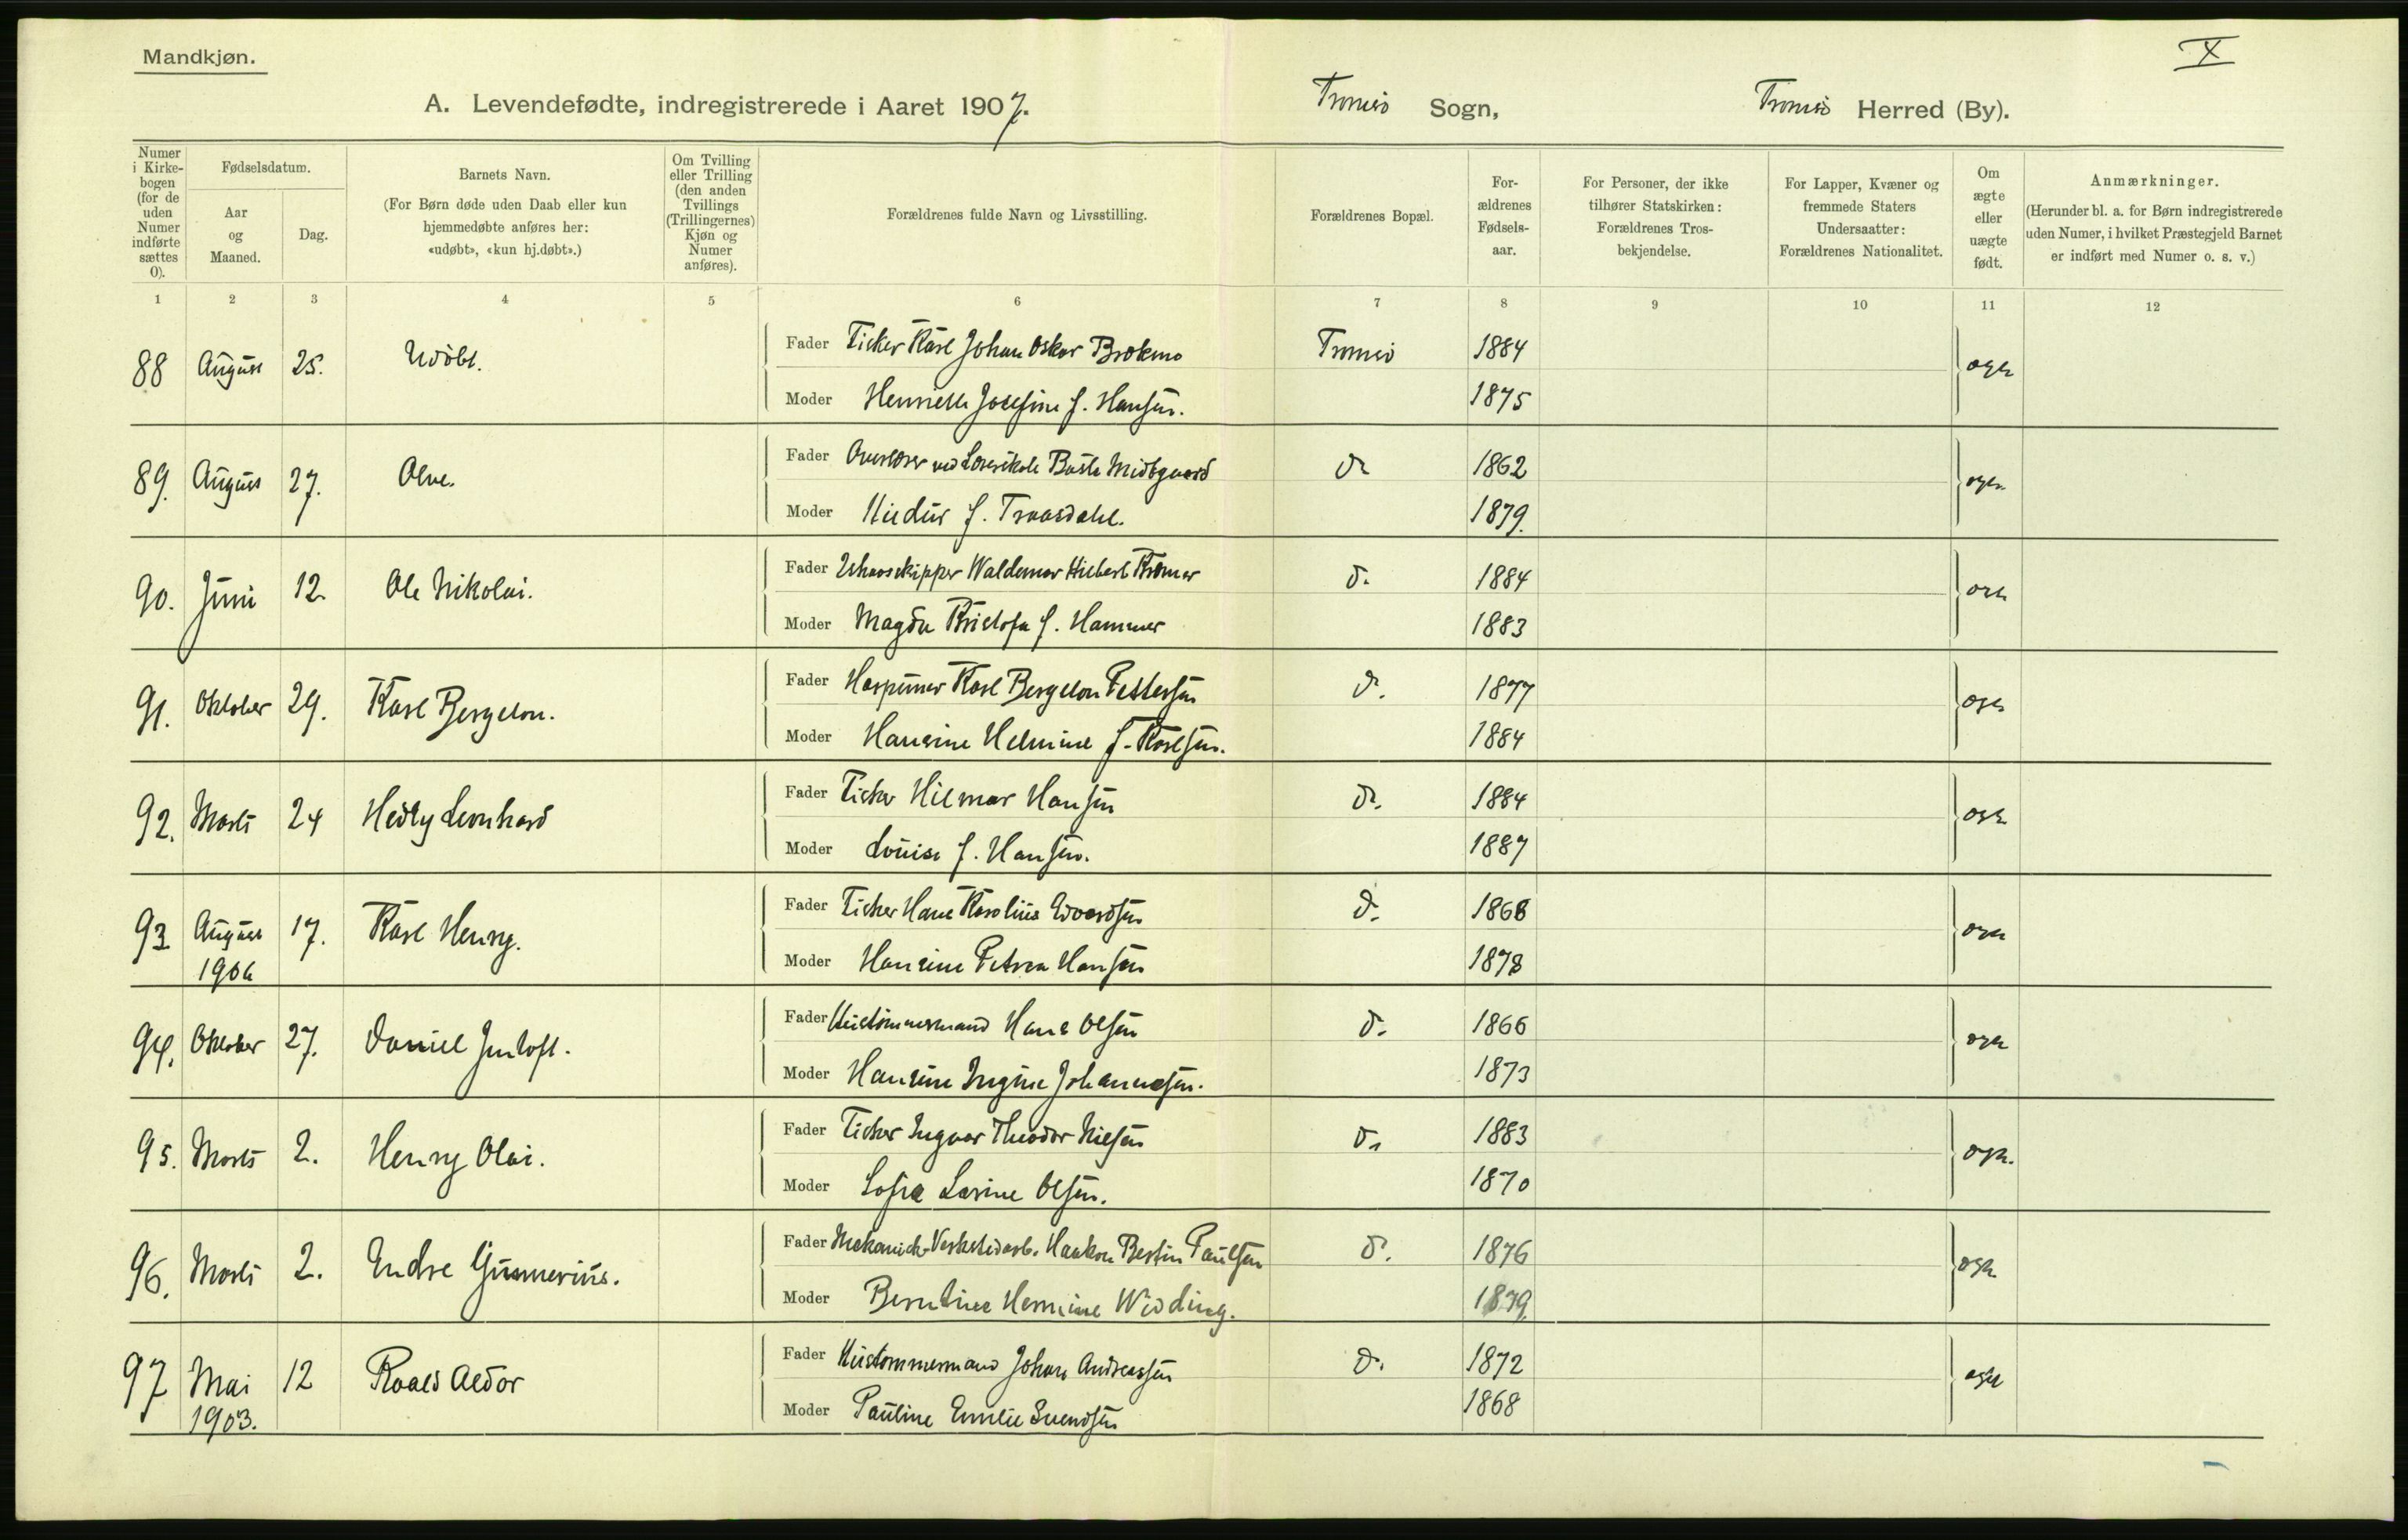 Mandkjøn.
X
A. Levendefødte, indregistrerede i Aaret 1907.
Tromsö Sogn,
Tromsö Herred (By).
Numer i Kirkebogen (for de uden Numer indførte sættes 0).
Fødselsdatum.
Aar og Maaned.
Dag.
Barnets Navn.
(For Børn døde uden Daab eller kun hjemmedøbte anføres her: «udøbt», «kun hj.døbt».)
Om Tvilling eller Trilling (den anden Tvillings (Trillingernes) Kjøn og Numer anføres).
Forældrenes fulde Navn og Livsstilling.
Forældrenes Bopæl.
Forældrenes Fødselsaar.
For Personer, der ikke tilhører Statskirken: Forældrenes Trosbekjendelse.
For Lapper, Kvæner og fremmede Staters Undersaatter: Forældrenes Nationalitet.
Om ægte eller uægte født.
Anmærkninger.
(Herunder bl. a. for Børn indregistrerede uden Numer, i hvilket Præstegjeld Barnet er indført med Numer o. s. v.)
1 2 3 4 5 6 7 8 9 10 11 12
88 August 25. Udöbt. Fader Fisker Karl Johan Oskar Brokmo Tromsö 1884 ægte
Moder Henriette Josefine f. Hansen. 1875
89. August 27. Olve. Fader Overlærer ved Lærerskole Midtgaard d 1862 ægte
Moder f. Traasdahl. 1879.
90. Juni 12. Ole Nikolai. Fader Ishavsskipper Waldemar Hilbert Kræmer d. 1884 ægte
Moder Magda Kristofa f. Hammer 1883
91. Oktober 29. Karl Bergeton. Fader Karl Bergeton Pettersen d. 1877 ægte
Moder Hansine Helmine f. Karlsen. 1884
92. Marts 24 Hedly Leonhard Fader Fisker Hilmar Hansen d. 1884 ægte
Moder Louise f. Hansen. 1887
93 August 17. Karl Henry. Fader Fisker Hans Karolius Edvardsen d. 1868 ægte
1906 Moder Hansine Petrea Hansen 1878
94. Oktober 27. Daniel Jentoft. Fader Hustømmermand Hans Olsen d. 1866 ægte
Moder Hansine Ingine Johannesen. 1873
95. Marts 2. Henry Olai. Fader Fisker Ingvar Theodor Nilsen d. 1883 ægte.
Moder Sofie Larine Olsen. 1870
96. Marts 2. Endre Gunnerius. Fader Mekanisk-Verkstedarb. Haakon Bertin Paulsen d. 1876 ægte
Moder Berntine Hermine Widding. 1879.
97 Mai 12 Roald Aldor Fader Hustommermand Johan Andreassen d. 1872 ægte
1903. Moder Pauline Emilie Svendsen 1868